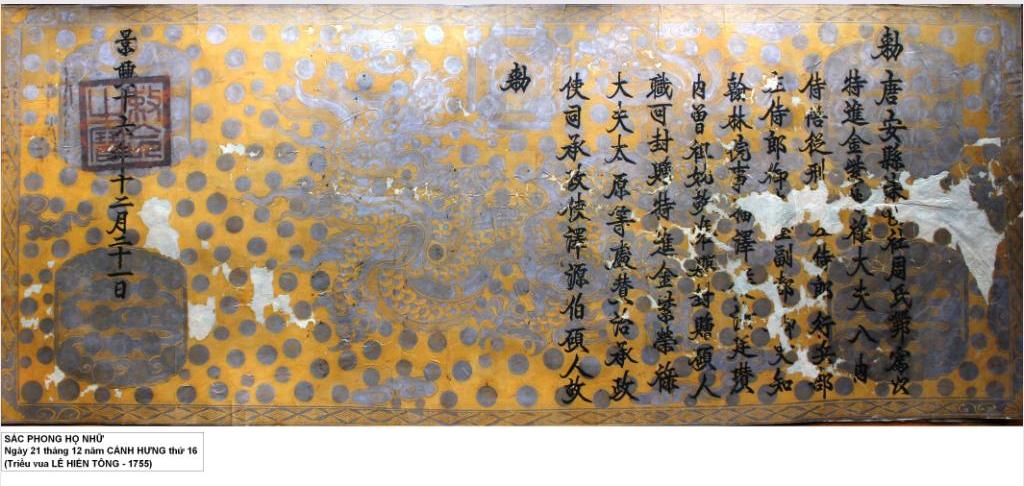 勅唐安縣社周氏
特進金紫祿大夫入內
侍陪從刑侍郎行兵部
左侍郎御副都史知
翰林院事澤廷攢
內曾祖妣封縣碩人
職可封贈特進金紫榮祿
大夫太原等處贊治承政
使司承政使澤源伯碩人故
勅
景興十六年十二月二十一日
SẮC PHONG HỌ NHỮ
Ngày 21 tháng 12 năm CẢNH HƯNG thứ 16
(Triều vua LÊ HIỂN TÔNG - 1755)